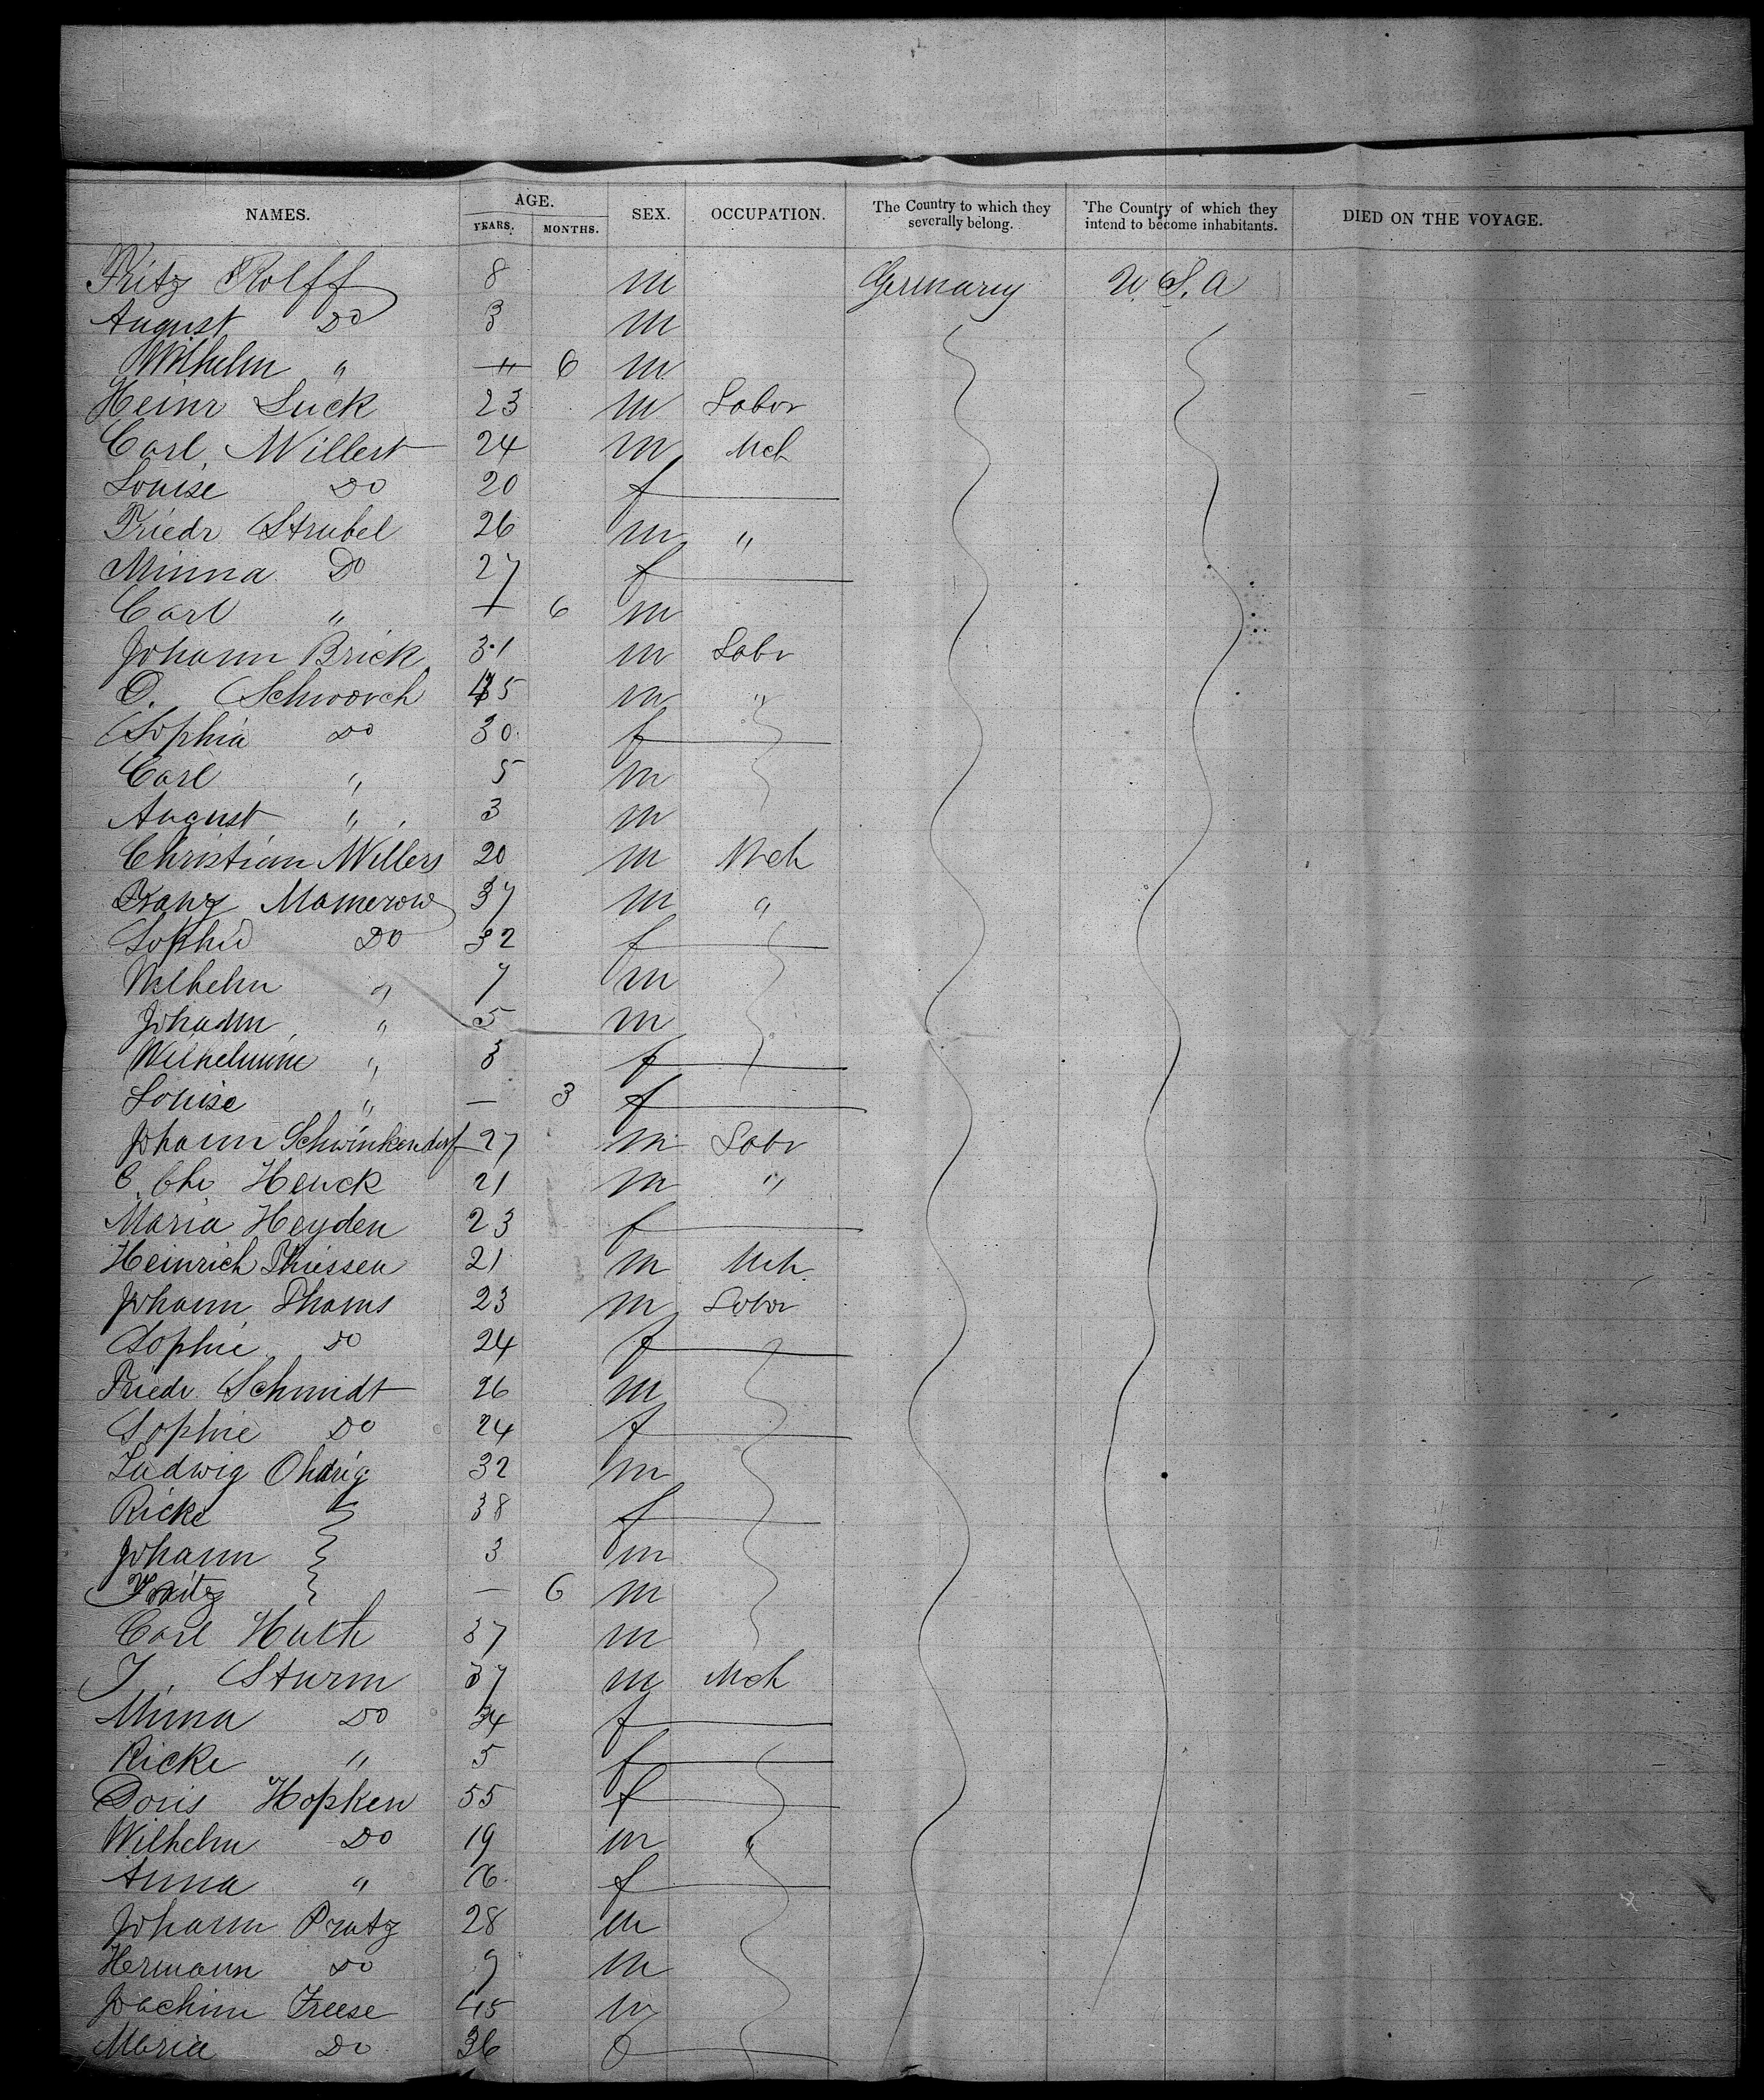 NAMES. AGE. YEARS. MONTHS. SEX. OCCUPATION. The Country to which they severally belong. The Country of which they intend to become inhabitants. DIED ON THE VOYAGE.
Fritz Rolff 8 m Germany U.S.A
August Do 3 m
Wilhelm " " 6 m
Heinr Luck 23 m Labor
Carl Willert 24 m Mch
Louise Do 20 f
Friedr Strubel 26 m "
Minna Do 27 f
Carl " 6 m
Johann Brick 31 m Labr
O. Schwoorch 45 m "
Sophia Do 30 f
Carl " 5 m
August " 3 m
Christian Willers 20 m Mch
Franz Mamerow 37 m "
Sophie Do 32 f
Wilhelm " 7 m
Johann " 5 m
Wilhelmine " 3 f
Louise " — 3 f
Johann Schwinkendorf 27 m Labr
C. Chr Henck 21 m "
Maria Heyden 23 f
Heinrich Thiessen 21 m Mch
Johann Thoms 23 m Labor
Sophie Do 24 f
Friedr Schmidt 26 m
Sophie Do 24 f
Ludwig 32 m
Ricke 38 f
Johann 3 m
Fritz — 6 m
Carl Huth 37 m
J. Sturm 37 m Mch
Minna Do 34 f
Ricke " 5 f
Doris Hopken 55 f
Wilhelm Do 19 m "
Anna " 16 f
Johann Pratz 28 m
Hermann Do 9 m
Joachim Freese 45 m
Maria Do 36 f